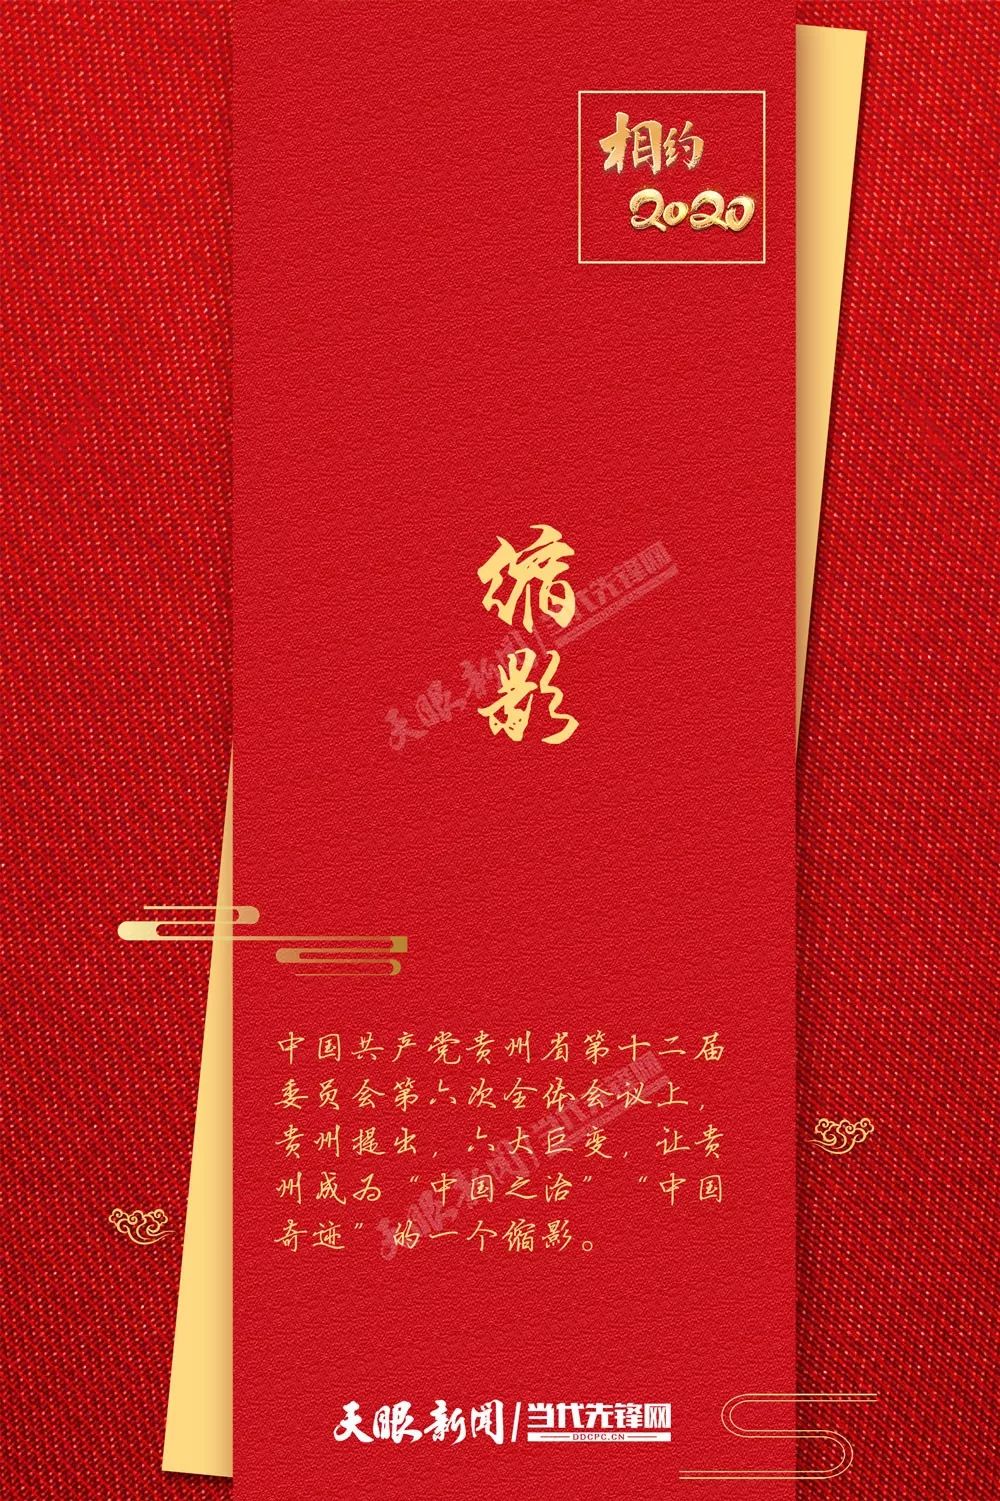 相约
2020
缩
影
中国共产党贵州省第十二届
委员会第六次全体会议上，
贵州提出，六大巨变，让贵
州成为“中国之治”“中国
奇迹”的一个缩影。
天眼新闻/当代先锋网
DDCPC.CN
天眼新闻/当代先锋网
天眼新闻/当代先锋网